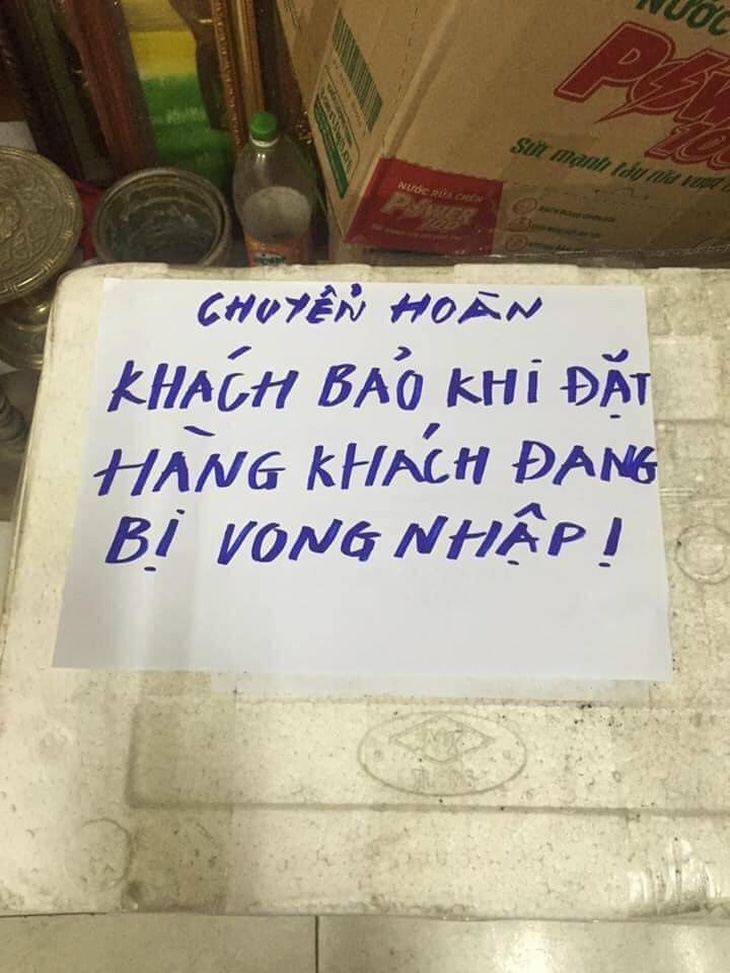 NƯỚC
POW
100
Sức mạnh tẩy rửa vượt
NƯỚC RỬA CHÉN
POWER
100
CHUYỂN HOÀN
KHÁCH BẢO KHI ĐẶT
HÀNG KHÁCH ĐANG
BỊ VONG NHẬP!